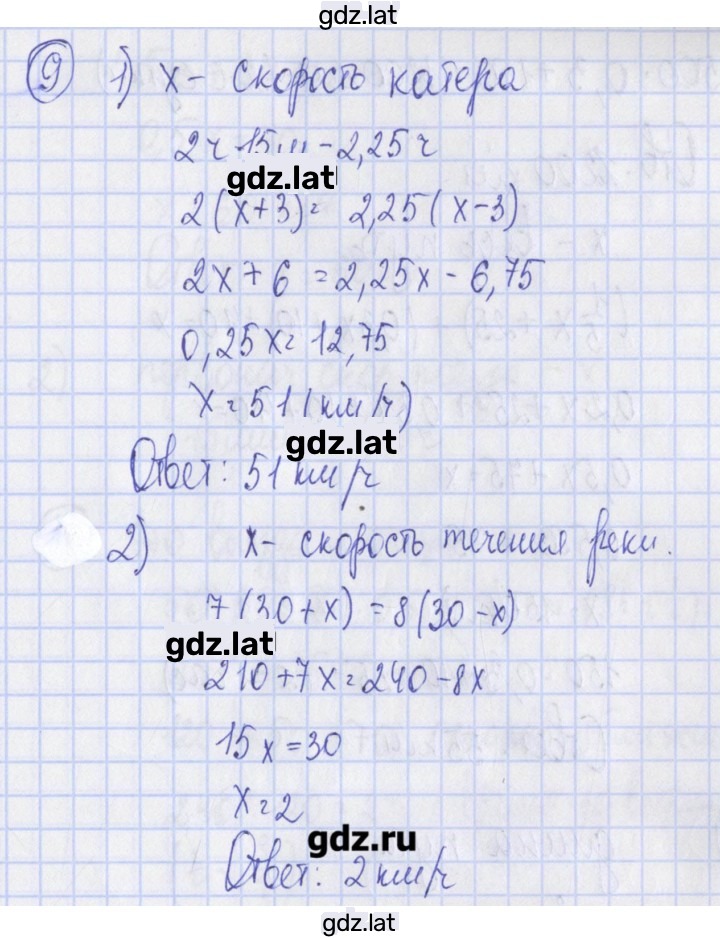 gdz.lat
9 1) x - скорость катера
2ч 15м - 2,25ч
gdz.lat
2(x+3) = 2,25(x-3)
2x + 6 = 2,25x - 6,75
0,25x = 12,75
x = 51 (км/ч)
gdz.lat
Ответ: 51 км/ч
2) x - скорость течения реки.
7(30+x) = 8(30-x)
gdz.lat
210+7x = 240-8x
15x = 30
x = 2
gdz.ru
Ответ: 2 км/ч
gdz.lat